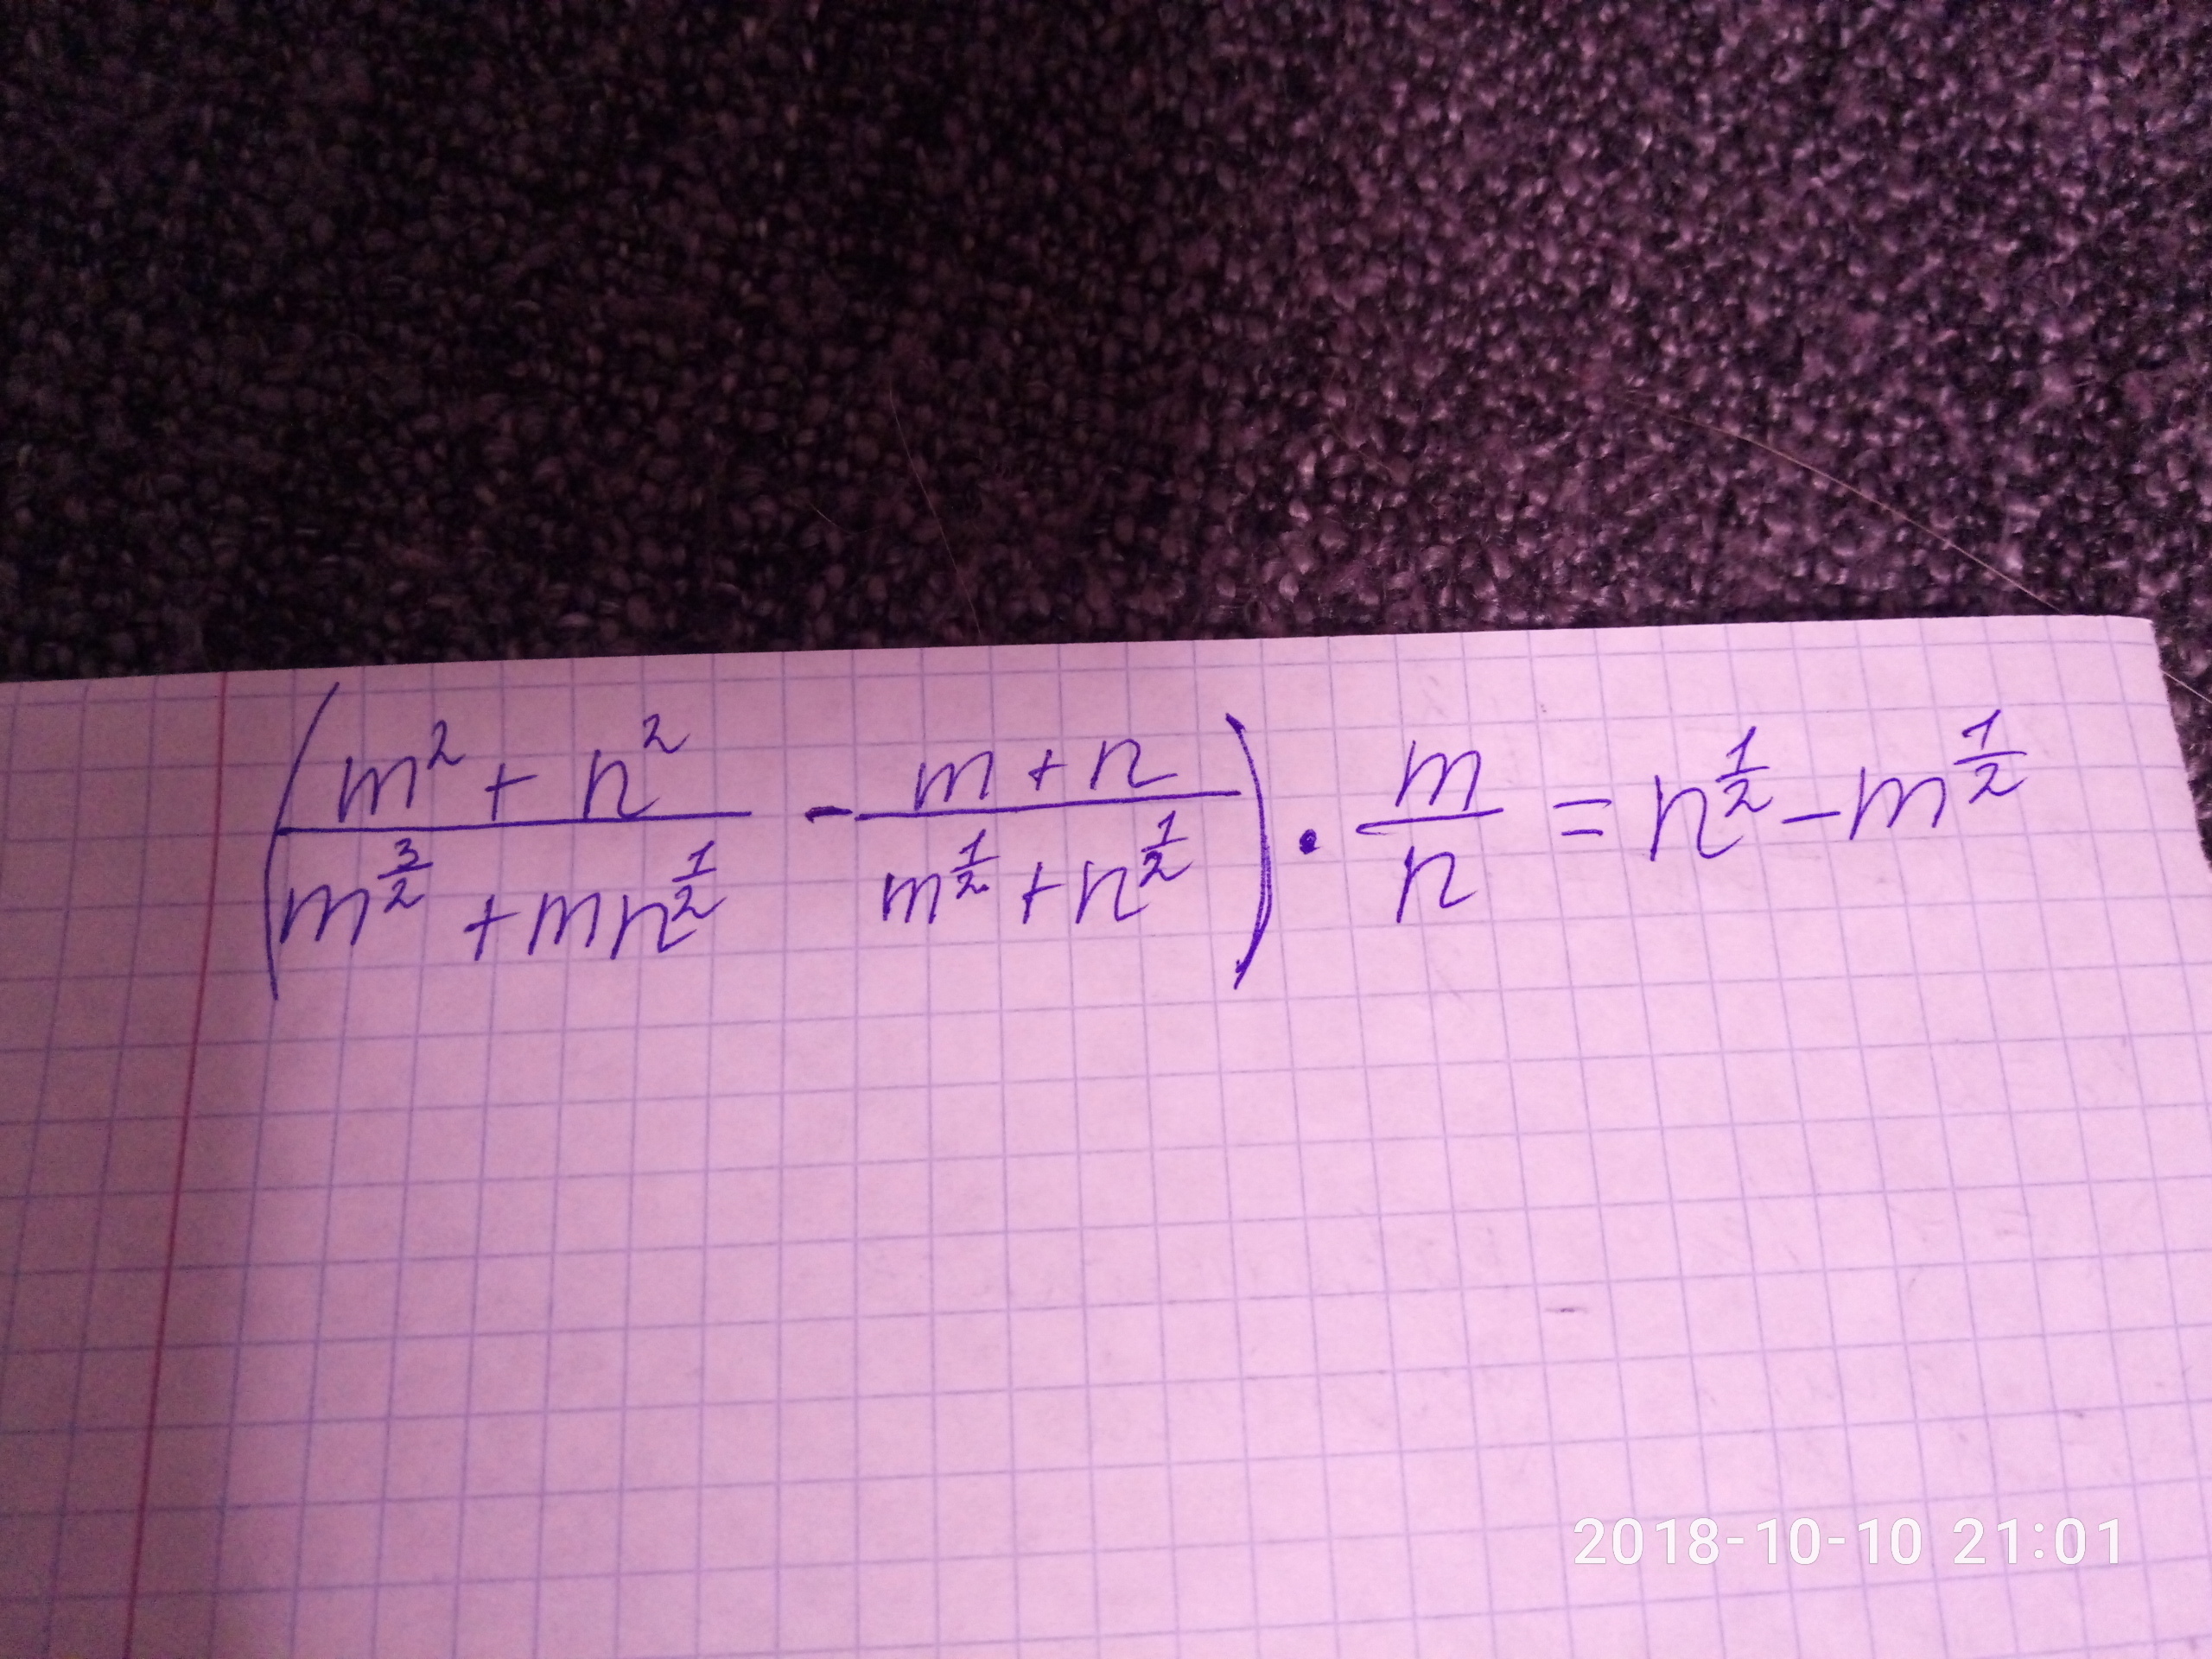 (m² + n² / m^(3/2) + mn^(1/2) - m + n / m^(1/2) + n^(1/2)) · m/n = n^(1/2) - m^(1/2)
2018-10-10 21:01